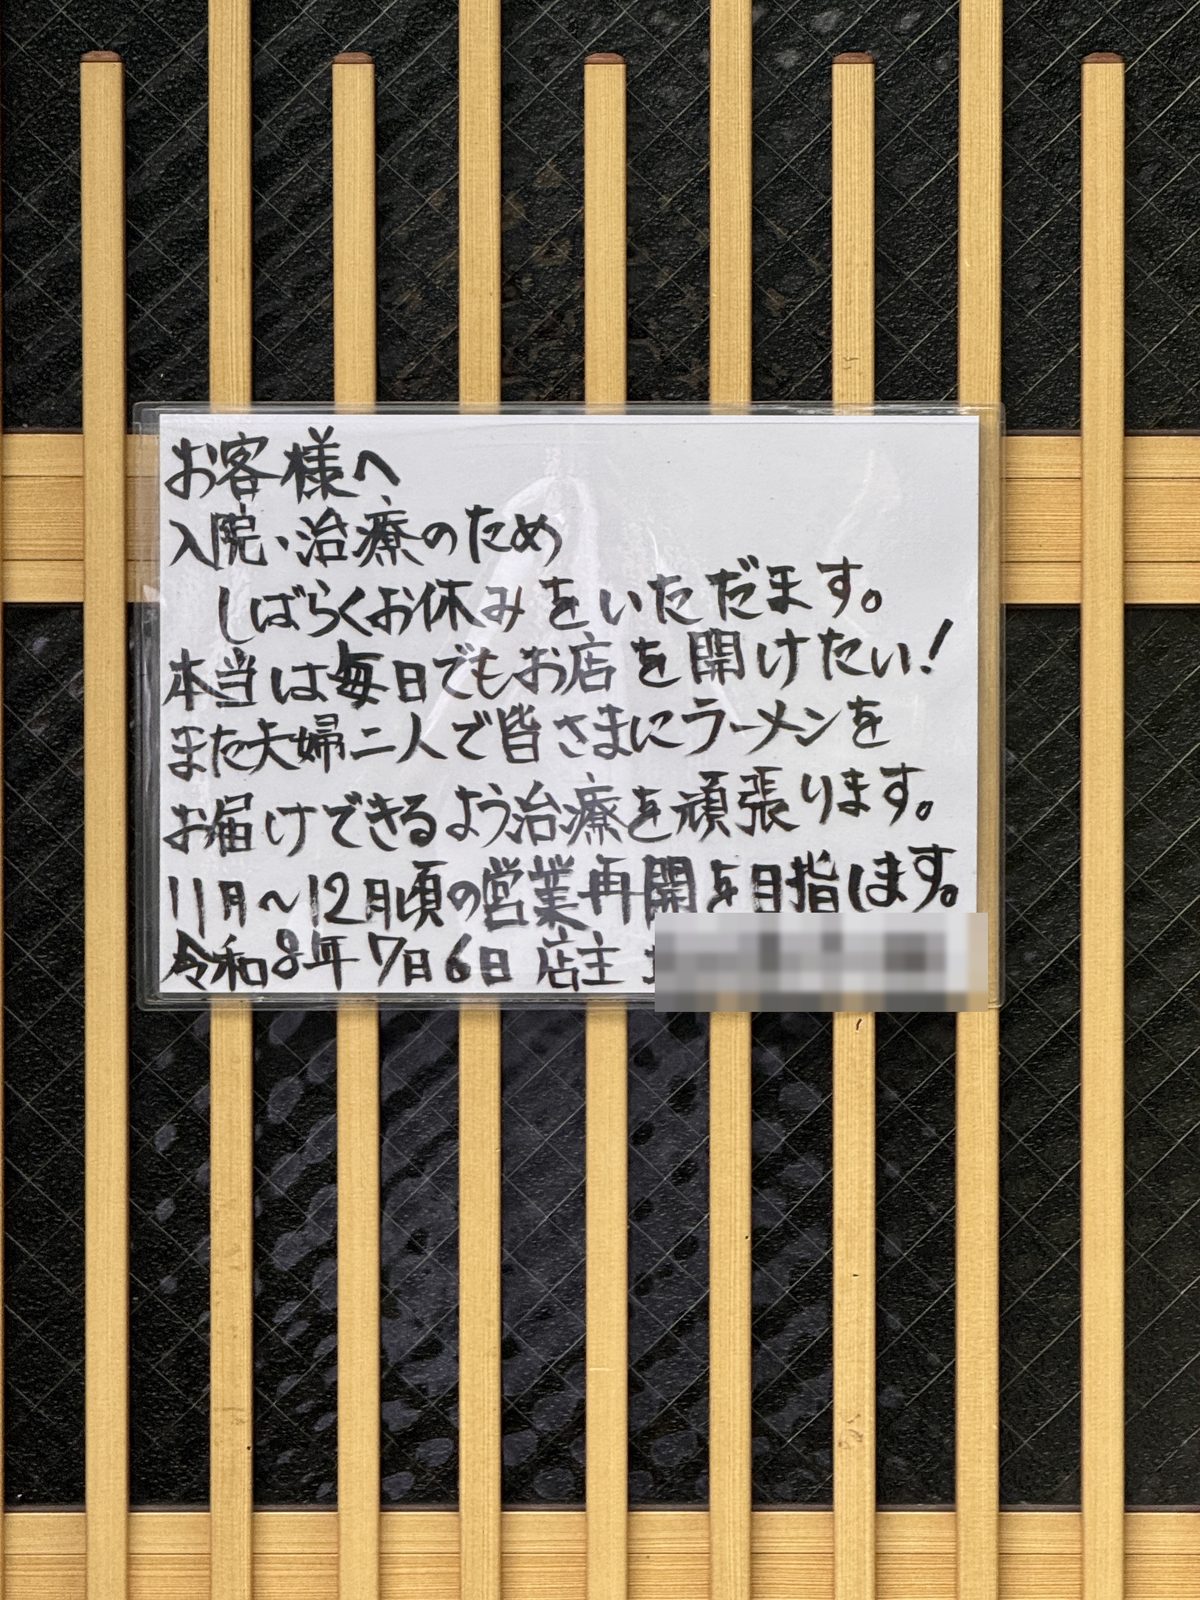 お客様へ
入院、治療のため
しばらくお休みをいただだます。
本当は毎日でもお店を開けたい!
また夫婦二人で皆さまにラーメンを
お届けできるよう治療を頑張ります。
11月~12月頃の営業再開を目指します。
令和8年7日6日 店主